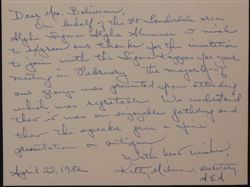 Dear Mrs.
On behalf of the Ft. Lauderdale area
Alpha Sigma Alpha Alumnae I wish
to express our thanks for the invitation
to join with the Sigma Kappas for your
meeting in February. The majority of
our group was prevented from attending
which was regrettable. We understand
there was an enjoyable gathering and
that the speaker gave a fine
presentation on antiques.
With best wishes,
Kitty, Secretary
April 22, 1982